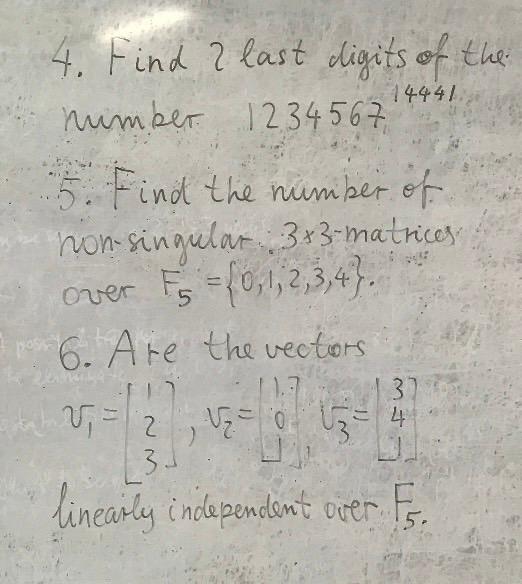 4. Find 2 last digits of the
number 1234567^14441
5. Find the number of
non-singular 3x3-matrices
over F_5 = {0,1,2,3,4}.
6. Are the vectors
v_1 = [1 2 3], v_2 = [1 0 1], v_3 = [3 4 1]
linearly independent over F_5.